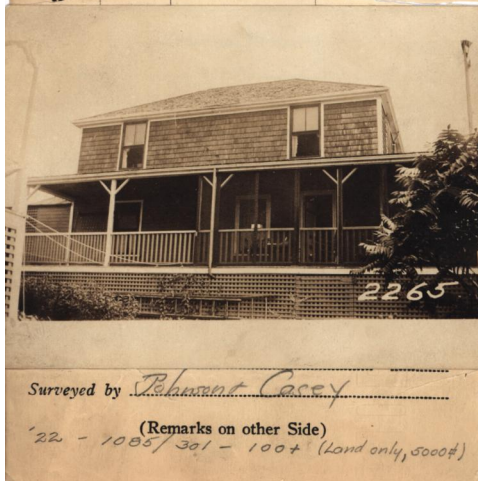 2265
Surveyed by Johnson & Casey
(Remarks on other Side)
'22 - 1085/301 - 100+ (Land only, 5000¢)